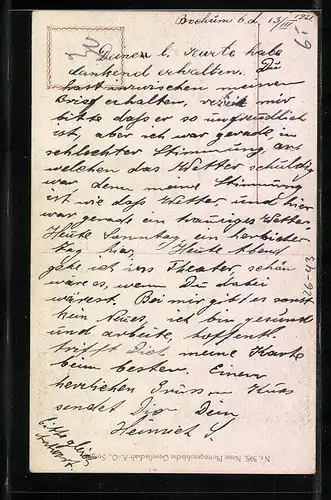 Bochum d. 13/III 1921
Deinen l. Karte habe
dankend erhalten. Du
hast inzwischen meinen
Brief erhalten, verzeih mir
bitte daß er so unfreundlich
ist, aber ich war gerade in
schlechter Stimmung, an
welchen das Wetter schuldig
war, denn meine Stimmung
ist wie daß Wetter, und hier
war gerade ein trauriges Wetter.
Heute Sonntag ein herrlicher
Tag hier. Heute Abend
gehe ich ins Theater, schön
wäre es, wenn Du dabei
wärest. Bei mir gibt es sonst
kein Neues, ich bin gesund
und arbeite, hoffentl.
trifft Dich meine Karte
beim besten. Einen
herzlichen Gruss u. Kuss
sendet Dir Dein
Heinrich S.
bitte gleich
Antwort.
26-43
Nr. 595, Neue Photographische Gesellschaft A.-G.,